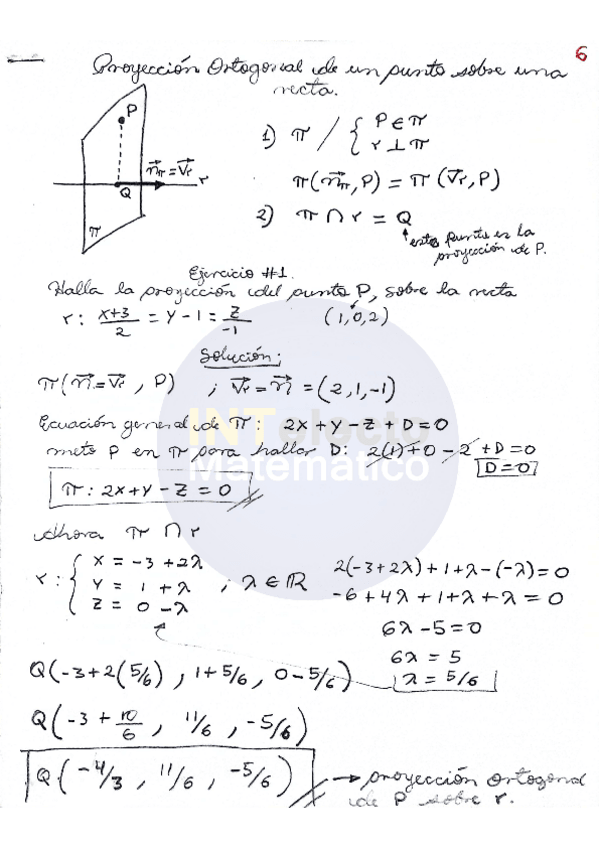 6
Proyección Ortogonal de un punto sobre una
recta.
P
n⃗π = v⃗r
r
Q
π
1) π / { P ∈ π
r ⊥ π
π(n⃗π, P) = π(v⃗r, P)
2) π ∩ r = Q
↑ este punto es la
proyección de P.
Ejercicio #1.
Halla la proyección del punto P, sobre la recta
r: x+3/2 = y - 1 = z/-1 (1,0,2)
Solución:
π(n⃗=v⃗r, P) ; v⃗r = n⃗ = (2,1,-1)
Ecuación general de π: 2x + y - z + D = 0
meto P en π para hallar D: 2(1) + 0 - 2 + D = 0
D = 0
π: 2x + y - z = 0
Ahora π ∩ r
r: { x = -3 + 2λ
y = 1 + λ ; λ ∈ ℝ
z = 0 - λ
2(-3+2λ) + 1 + λ - (-λ) = 0
-6 + 4λ + 1 + λ + λ = 0
6λ - 5 = 0
6λ = 5
λ = 5/6
Q(-3+2(5/6), 1+5/6, 0-5/6)
Q(-3 + 10/6, 11/6, -5/6)
Q(-4/3, 11/6, -5/6) → proyección ortogonal
de P sobre r.
INTelecto
Matemático